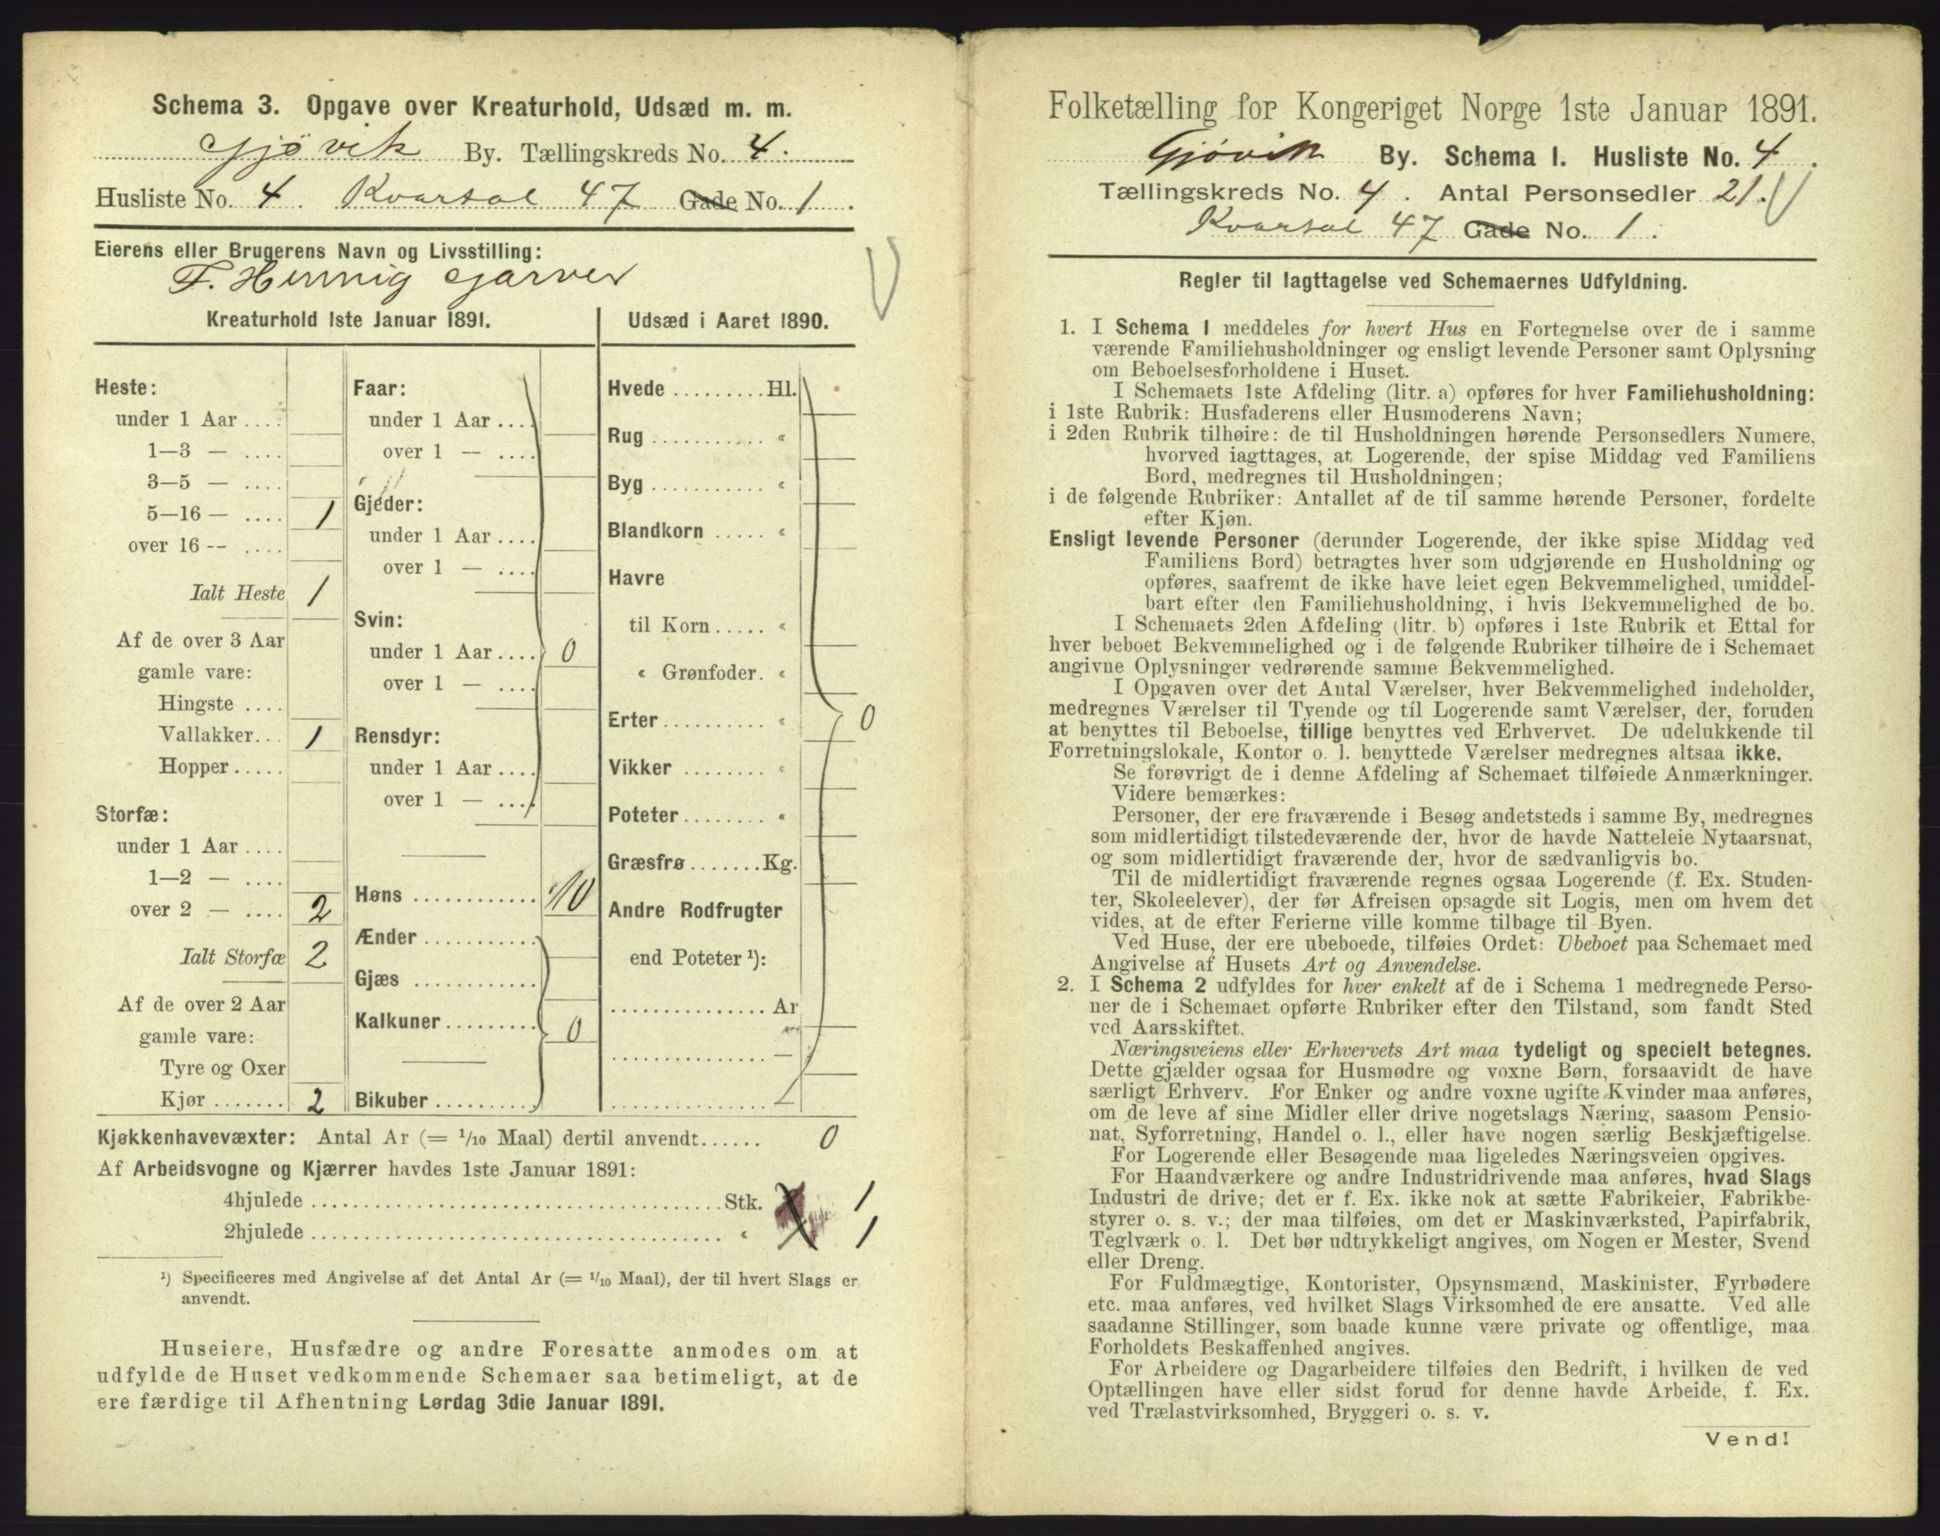 Schema 3. Opgave over Kreaturhold, Udsæd m. m.
Gjøvik By. Tællingskreds No. 4.
Husliste No. 4. Kvartal 47 Gade No. 1.
Eierens eller Brugerens Navn og Livsstilling:
F. Hennig Garver
Kreaturhold 1ste Januar 1891.
Heste:
under 1 Aar ....
1—3 — ....
3—5 — ....
5—16 — .... 1
over 16 -- ....
Ialt Heste 1
Af de over 3 Aar
gamle vare:
Hingste ....
Vallakker... 1
Hopper.....
Storfæ:
under 1 Aar ....
1—2 — ....
over 2 — .... 2
Ialt Storfæ 2
Af de over 2 Aar
gamle vare:
Tyre og Oxer
Kjør ....... 2
Faar:
under 1 Aar ....
over 1 — ....
Gjeder:
under 1 Aar ....
over 1 — ....
Svin:
under 1 Aar .... 0
over 1 — ....
Rensdyr:
under 1 Aar ....
over 1 — ....
Høns ............ 10
Ænder ...........
Gjæs ............
Kalkuner ......... 0
Bikuber ..........
Udsæd i Aaret 1890.
Hvede ......... Hl.
Rug ........... "
Byg ........... "
Blandkorn ..... "
Havre
til Korn ..... "
" Grønfoder. "
Erter ......... " 0
Vikker ........ "
Poteter ........ "
Græsfrø ....... Kg.
Andre Rodfrugter
end Poteter ¹):
............... Ar
............... —
...............
Kjøkkenhavevæxter: Antal Ar (= 1/10 Maal) dertil anvendt...... 0
Af Arbeidsvogne og Kjærrer havdes 1ste Januar 1891:
4hjulede ........................................ Stk. 1
2hjulede ........................................ " 1
¹) Specificeres med Angivelse af det Antal Ar (= 1/10 Maal), der til hvert Slags er
anvendt.
Huseiere, Husfædre og andre Foresatte anmodes om at
udfylde de Huset vedkommende Schemaer saa betimeligt, at de
ere færdige til Afhentning Lørdag 3die Januar 1891.
Folketælling for Kongeriget Norge 1ste Januar 1891.
Gjøvik By. Schema 1. Husliste No. 4.
Tællingskreds No. 4. Antal Personsedler 21.
Kvartal 47 Gade No. 1.
Regler til Iagttagelse ved Schemaernes Udfyldning.
1. I Schema 1 meddeles for hvert Hus en Fortegnelse over de i samme
værende Familiehusholdninger og ensligt levende Personer samt Oplysning
om Beboelsesforholdene i Huset.
I Schemaets 1ste Afdeling (litr. a) opføres for hver Familiehusholdning:
i 1ste Rubrik: Husfaderens eller Husmoderens Navn;
i 2den Rubrik tilhøire: de til Husholdningen hørende Personsedlers Numere,
hvorved iagttages, at Logerende, der spise Middag ved Familiens
Bord, medregnes til Husholdningen;
i de følgende Rubriker: Antallet af de til samme hørende Personer, fordelte
efter Kjøn.
Ensligt levende Personer (derunder Logerende, der ikke spise Middag ved
Familiens Bord) betragtes hver som udgjørende en Husholdning og
opføres, saafremt de ikke have leiet egen Bekvemmelighed, umiddel-
bart efter den Familiehusholdning, i hvis Bekvemmelighed de bo.
I Schemaets 2den Afdeling (litr. b) opføres i 1ste Rubrik et Ettal for
hver beboet Bekvemmelighed og i de følgende Rubriker tilhøire de i Schemaet
angivne Oplysninger vedrørende samme Bekvemmelighed.
I Opgaven over det Antal Værelser, hver Bekvemmelighed indeholder,
medregnes Værelser til Tyende og til Logerende samt Værelser, der, foruden
at benyttes til Beboelse, tillige benyttes ved Erhvervet. De udelukkende til
Forretningslokale, Kontor o. l. benyttede Værelser medregnes altsaa ikke.
Se forøvrigt de i denne Afdeling af Schemaet tilføiede Anmærkninger.
Videre bemærkes:
Personer, der ere fraværende i Besøg andetsteds i samme By, medregnes
som midlertidigt tilstedeværende der, hvor de havde Natteleie Nytaarsnat,
og som midlertidigt fraværende der, hvor de sædvanligvis bo.
Til de midlertidigt fraværende regnes ogsaa Logerende (f. Ex. Studen-
ter, Skoleelever), der før Afreisen opsagde sit Logis, men om hvem det
vides, at de efter Ferierne ville komme tilbage til Byen.
Ved Huse, der ere ubeboede, tilføies Ordet: Ubeboet paa Schemaet med
Angivelse af Husets Art og Anvendelse.
2. I Schema 2 udfyldes for hver enkelt af de i Schema 1 medregnede Perso-
ner de i Schemaet opførte Rubriker efter den Tilstand, som fandt Sted
ved Aarsskiftet.
Næringsveiens eller Erhvervets Art maa tydeligt og specielt betegnes.
Dette gjælder ogsaa for Husmødre og voxne Børn, forsaavidt de have
særligt Erhverv. For Enker og andre voxne ugifte Kvinder maa anføres,
om de leve af sine Midler eller drive nogetslags Næring, saasom Pensio-
nat, Syforretning, Handel o. l., eller have nogen særlig Beskjæftigelse.
For Logerende eller Besøgende maa ligeledes Næringsveien opgives.
For Haandværkere og andre Industridrivende maa anføres, hvad Slags
Industri de drive; det er f. Ex. ikke nok at sætte Fabrikeier, Fabrikbe-
styrer o. s. v.; der maa tilføies, om det er Maskinværksted, Papirfabrik,
Teglværk o. l. Det bør udtrykkeligt angives, om Nogen er Mester, Svend
eller Dreng.
For Fuldmægtige, Kontorister, Opsynsmænd, Maskinister, Fyrbødere
etc. maa anføres, ved hvilket Slags Virksomhed de ere ansatte. Ved alle
saadanne Stillinger, som baade kunne være private og offentlige, maa
Forholdets Beskaffenhed angives.
For Arbeidere og Dagarbeidere tilføies den Bedrift, i hvilken de ved
Optællingen have eller sidst forud for denne havde Arbeide, f. Ex.
ved Trælastvirksomhed, Bryggeri o. s. v.
Vend!